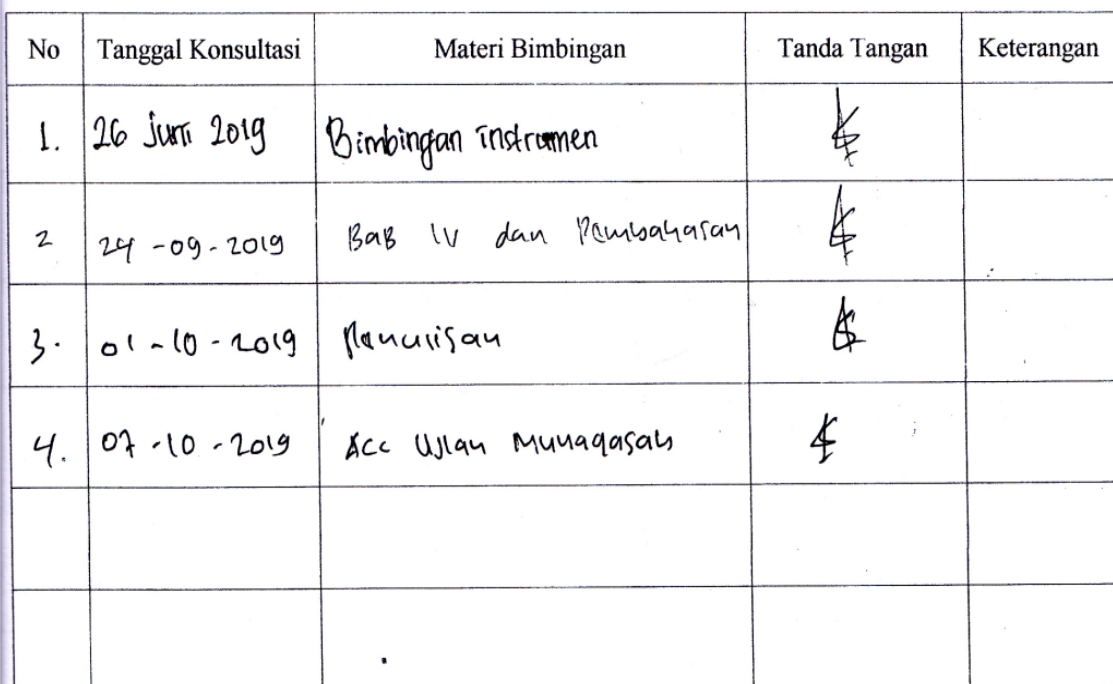 No Tanggal Konsultasi Materi Bimbingan Tanda Tangan Keterangan
1. 26 Juni 2019 Bimbingan instrumen
2 24 -09-2019 BaB IV dan Pembahasan
3. 01-10-2019 Penulisan
4. 07-10-2019 Acc Ujian Munaqasah